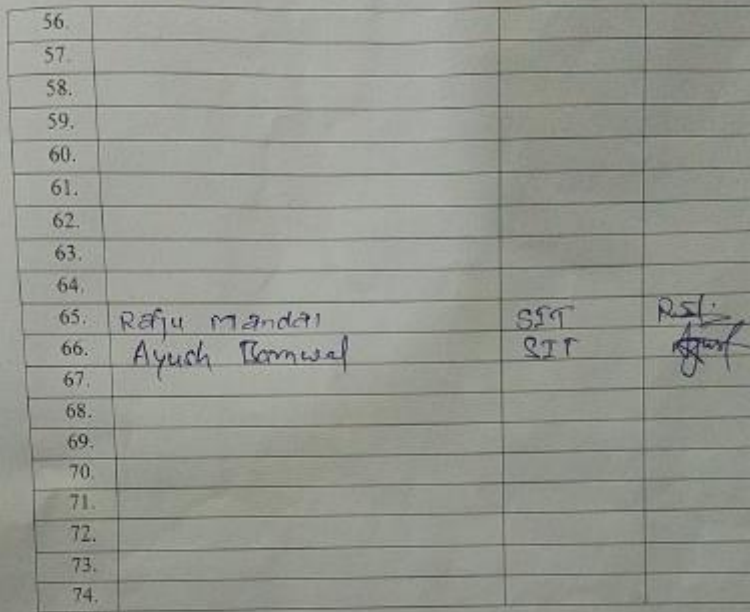 56.
57.
58.
59.
60.
61.
62.
63.
64.
65. Raju Mandal SIT
66. Ayush SIT
67.
68.
69.
70.
71.
72.
73.
74.